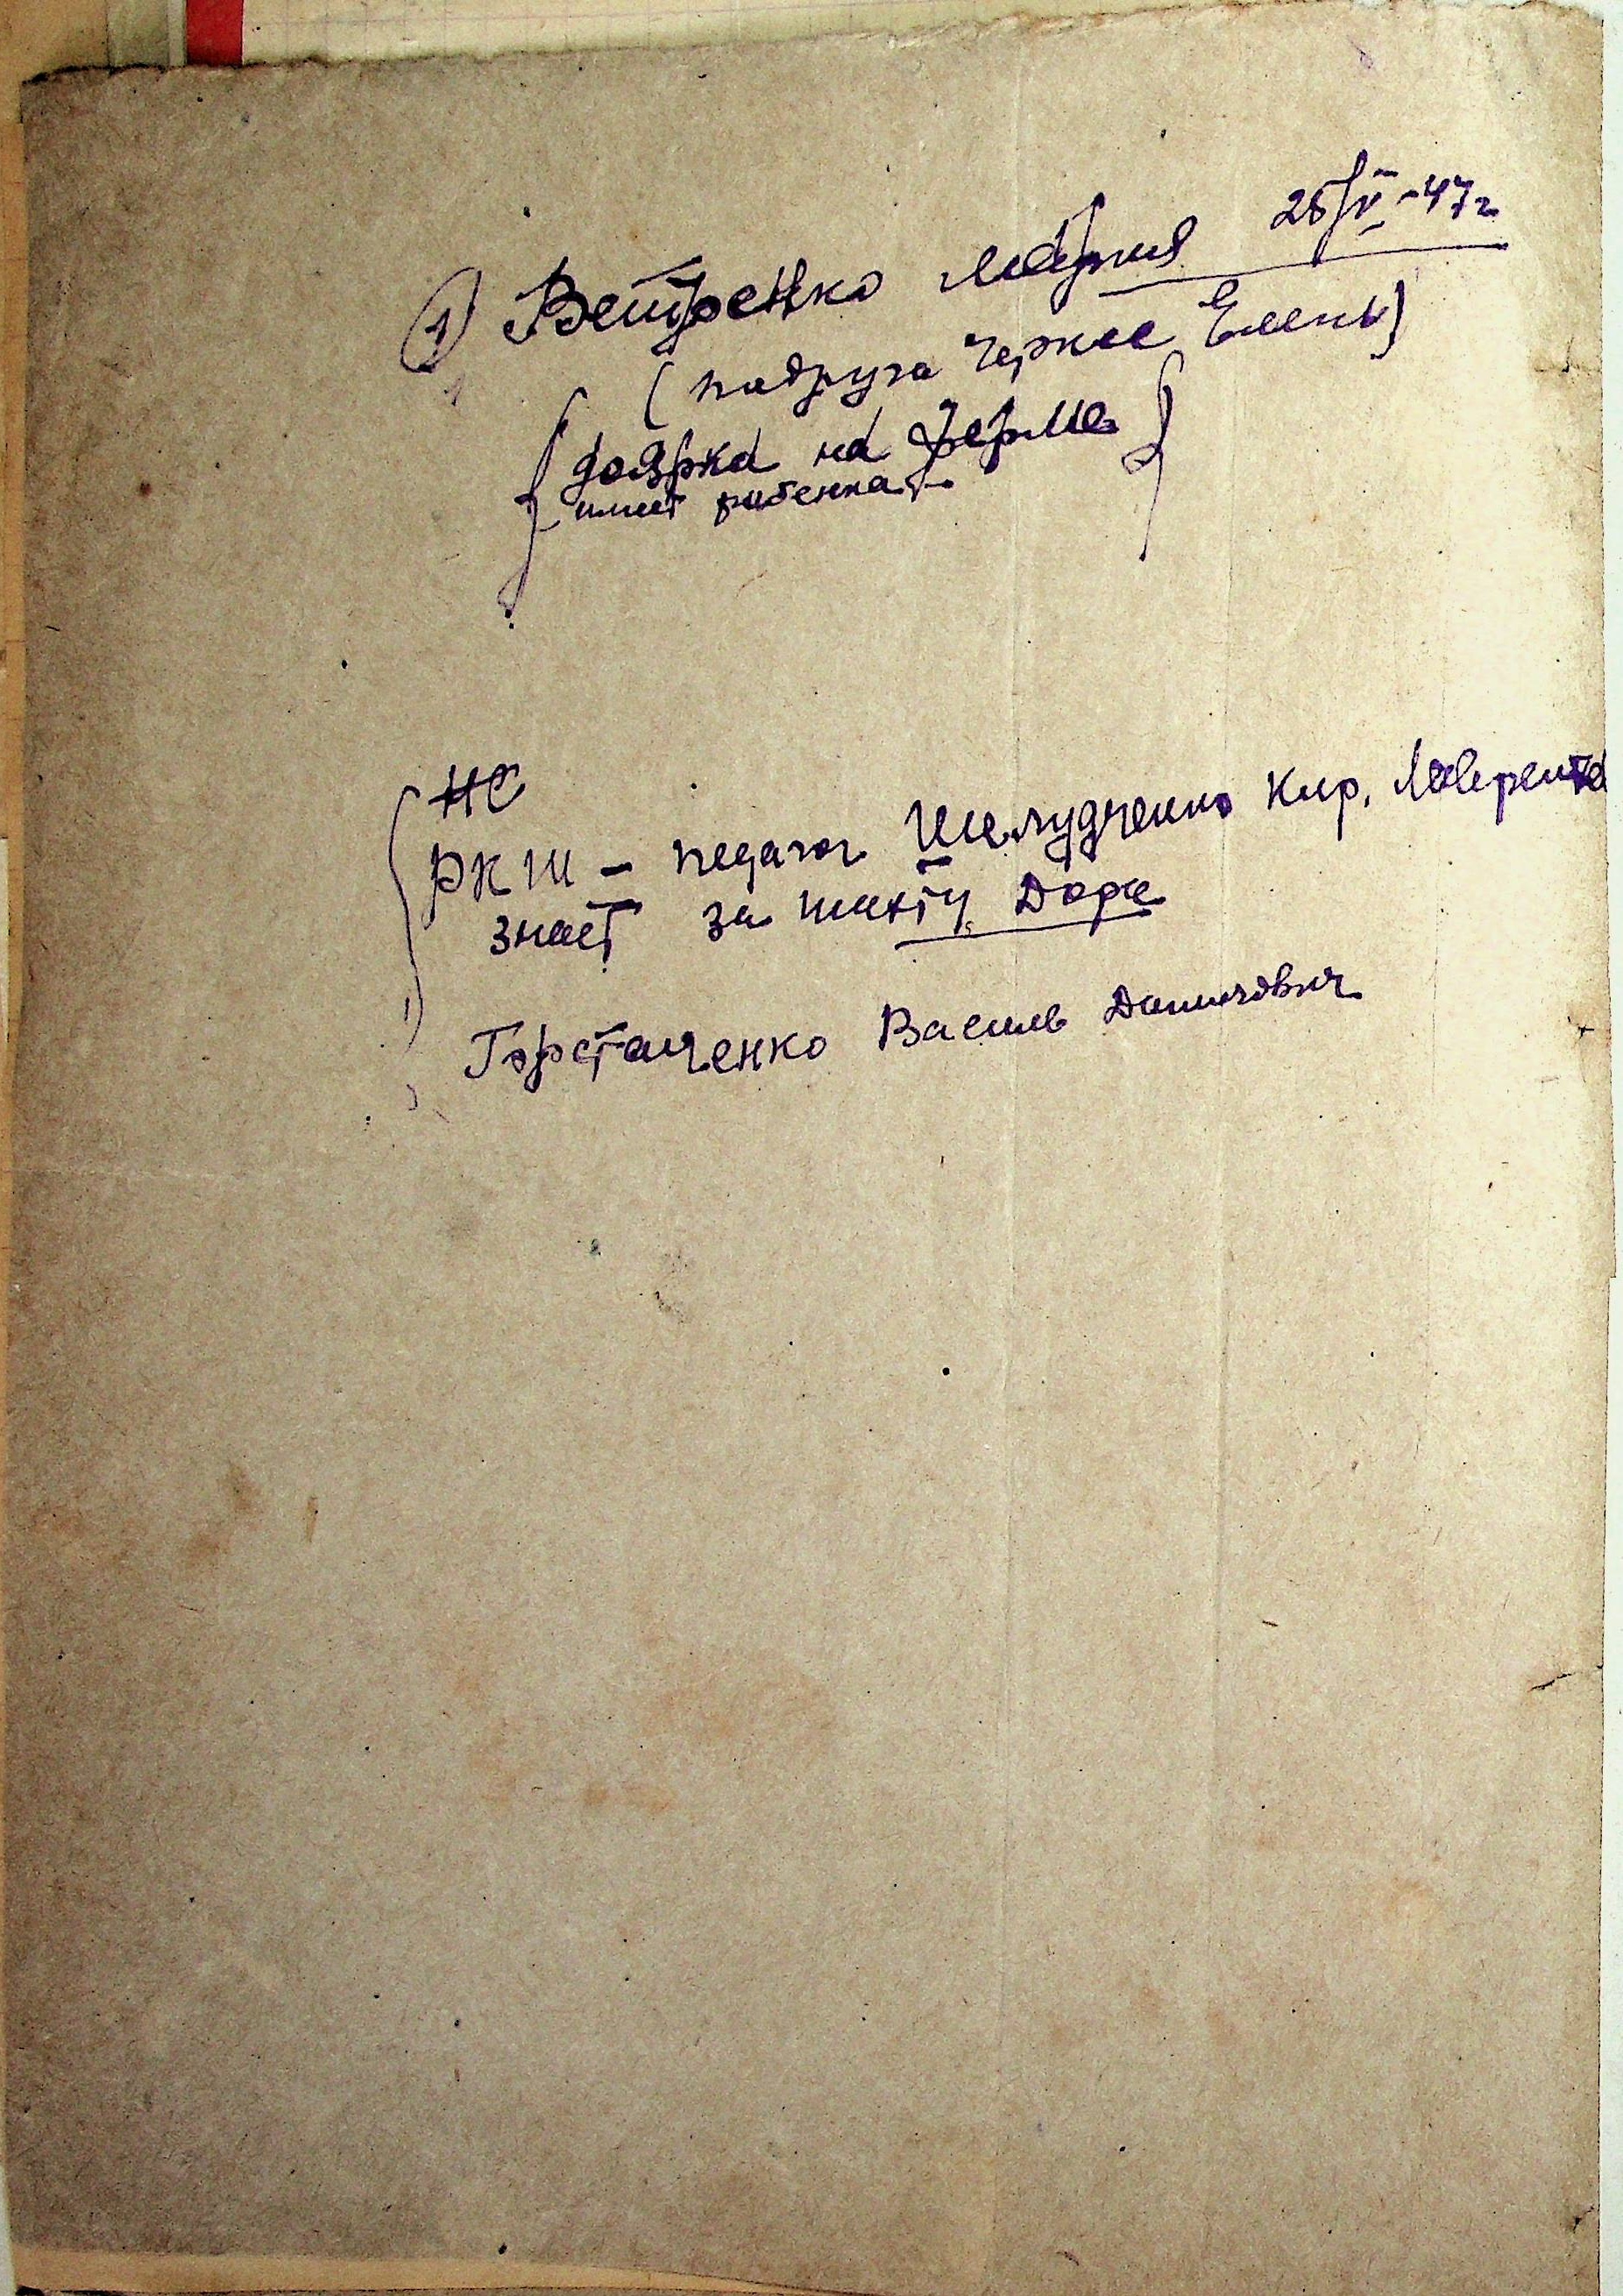 1) Ветренко Мария 25/V-47г
(подруга Черкес Елены)
доярка на ферме
имеет ребенка
НС
РКШ - педагог Шелудченко Кир. Лаврента
знает за шахту Доре
Горстанченко Василь Данилович